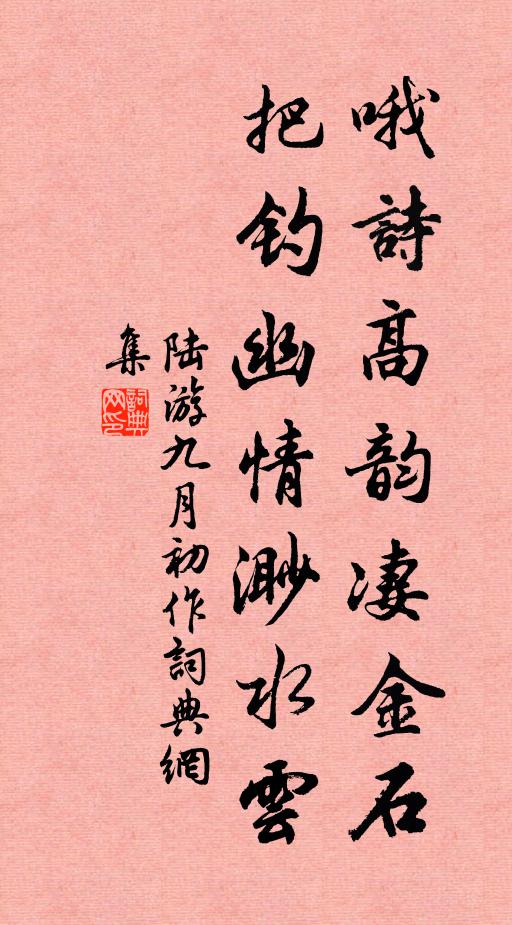 哦詩高韵凄金石
把钓幽情渺水雲
陆游九月初作詞典網
集
詞典网印